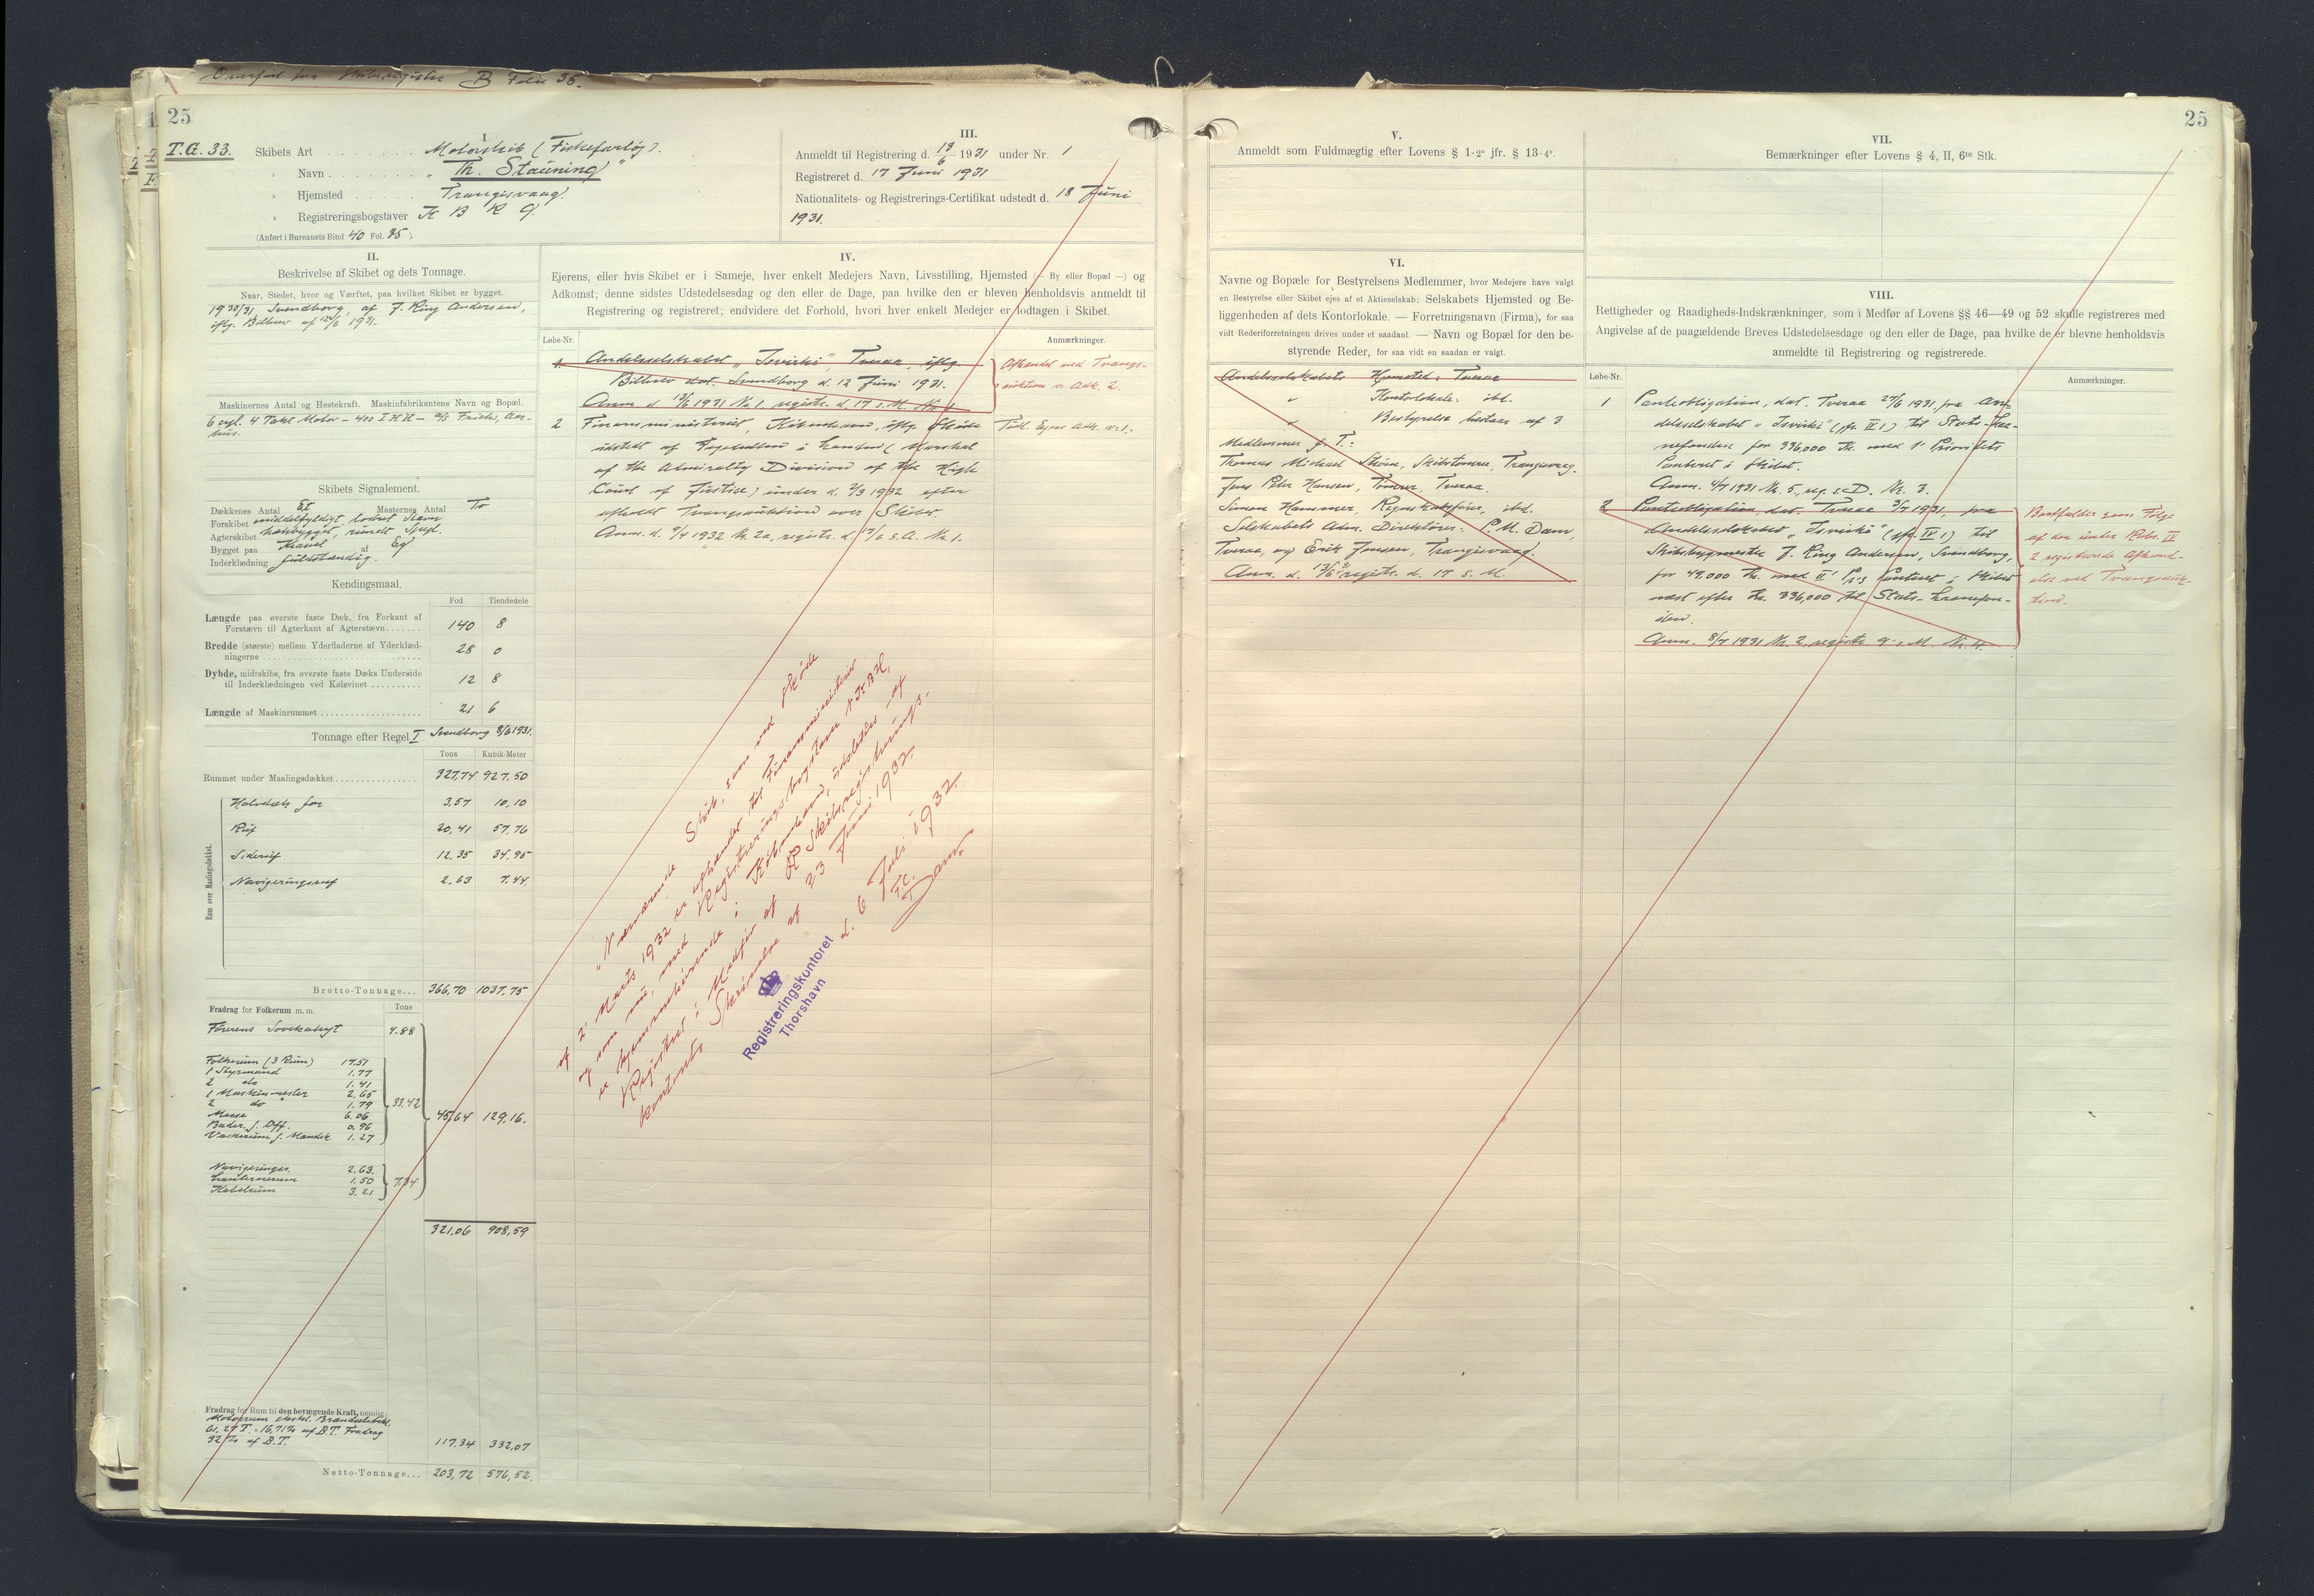 Overført fra Skibsregister B Folio 36.
25
T.G. 33.
I
Skibets Art . . . . . . . . Motorskib (Fiskefartøj).
" Navn . . . . . . . . "Th. Stauning"
" Hjemsted . . . . . Trangisvaag.
" Registreringsbogstaver
(Anført i Bureauets Bind 40 Fol. 35 ).
III.
Anmeldt til Registrering d. 13/6 1931 under Nr. 1
Registreret d. 17 Juni 1931
Nationalitets- og Registrerings-Certifikat udstedt d. 18 Juni
1931.
II.
Beskrivelse af Skibet og dets Tonnage.
Naar, Stedet, hvor og Værftet, paa hvilket Skibet er bygget.
1930/31, Svendborg, af J. Ring Andersen,
iflg. Bilbrev af 12/6 1931.
Maskinernes Antal og Hestekraft. Maskinfabrikantens Navn og Bopæl.
6 cyl. 4 Takt Motor – 400 I H K – A/S Frichs, Aar-
hus.
Skibets Signalement.
Dækkenes Antal Et Masternes Antal To
Forskibet middelfyldigt, lodret Stævn
Agterskibet hækbygget, rundt Spejl.
Bygget paa Kravel af Eg
Inderklædning fuldstændig.
Kendingsmaal.
Fod Tiendedele
Længde paa øverste faste Dæk, fra Forkant af
Forstævn til Agterkant af Agterstævn . . . . . . . 140 8
Bredde (største) mellem Yderfladerne af Yderklæd-
ningerne . . . . . . . 28 0
Dybde, midtskibs, fra øverste faste Dæks Underside
til Inderklædningen ved Kølsvinet . . . . . . . . . . 12 8
Længde af Maskinrummet . . . . . . . 21 6
Tonnage efter Regel I Svendborg 8/6 1931.
Tons Kubik-Meter
Rummet under Maalingsdækket . . . . . . . 327,74 927.50
Rum over Maalingsdækket.
Halvdæk for 3,57 10,10
Ruf 20,41 57,76
Sideruf 12,35 34,95
Navigeringsruf 2,63 7,44
Brutto-Tonnage . . . 366,70 1037,75
Fradrag for Folkerum m. m. Tons
Førerens Sovekahyt 4.88
Folkerum (3 Rum) 17.51
1 Styrmand 1.77
2 do 1.41
1 Maskinmester 2.65
2 do 1.79
Messe 6.06
Badev. f. Off. 0.96
Vaskerum f. Mandsk 1.27
33.42
45,64 129,16.
Navigeringsr. 2.63.
Lanternerum 1.50
Kabelrum 3.21
7.34
321,06 908,59
Fradrag for Rum til den bevægende Kraft, nemlig
Motorrum ekskl. Brændselsbeh.
61,27 T. = 16,71% af B.T. Fradrag
32% af B.T. 117.34 332,07
Netto-Tonnage . . . 203,72 576,52.
IV.
Ejerens, eller hvis Skibet er i Sameje, hver enkelt Medejers Navn, Livsstilling, Hjemsted (— By eller Bopæl —) og
Adkomst; denne sidstes Udstedelsesdag og den eller de Dage, paa hvilke den er bleven henholdsvis anmeldt til
Registrering og registreret; endvidere det Forhold, hvori hver enkelt Medejer er lodtagen i Skibet.
Løbe-Nr. Anmærkninger.
1 Andelsselskabet "Isvirki", Tveraa, iflg.
Bilbrev dat. Svendborg d. 12 Juni 1931.
Anm. d. 13/6 1931 Nr. 1. registr. d. 17 s. M. Nr. 1
Afhændet ved Tvangs-
auktion v. Adk. 2.
2 Finansministeriet, København, iflg. Skøde
udstedt af Fogeden i London (Marshal
of the Admiralty Division of the High
Court of Justice) under d. 2/3 1932 efter
afholdt Tvangsauktion over Skibet
Anm. d. 9/4 1932 Nr. 2a, registr. d. 17/6 s.A. Nr. 1.
Tidl. Ejer Adk. nr. 1.
"Nærværende Skib, som ved Skøde
af 2' Marts 1932 er afhændet til Finansministeriet
og som nu, med Registreringsbogstaver
er hjemmehørende i København, udslettes af
Registret i Medfør af Skibsregistrerings-
kontorets Skrivelse af 23 Juni 1932.
d. 6 Juli 1932.
Dam.
Registreringskontoret
Thorshavn
25
V.
Anmeldt som Fuldmægtig efter Lovens § 1-2° jfr. § 13-4°.
VI.
Navne og Bopæle for Bestyrelsens Medlemmer, hvor Medejere have valgt
en Bestyrelse eller Skibet ejes af et Aktieselskab; Selskabets Hjemsted og Be-
liggenheden af dets Kontorlokale. — Forretningsnavn (Firma), for saa
vidt Rederiforretningen drives under et saadant. — Navn og Bopæl for den be-
styrende Reder, for saa vidt en saadan er valgt.
Andelsselskabets Hjemsted: Tveraa
" Kontorlokale: ibd.
" Bestyrelse bestaar af 3
Medlemmer f. T.:
Thomas Michael Thom, Skibstømrer, Trangisvaag.
Jens Peter Hansen, Tømrer, Tveraa.
Simon Hammer, Regnskabsfører, ibd.
Selskabets Adm. Direktører: P. M. Dam,
Tveraa, og Erik Jensen, Trangisvaag.
Anm. d. 13/6 31 registr. d. 17 s. M.
VII.
Bemærkninger efter Lovens § 4, II, 6te Stk.
VIII.
Rettigheder og Raadigheds-Indskrænkninger, som i Medfør af Lovens §§ 46—49 og 52 skulle registreres med
Angivelse af de paagældende Breves Udstedelsesdage og den eller de Dage, paa hvilke de er blevne henholdsvis
anmeldte til Registrering og registrerede.
Løbe-Nr. Anmærkninger.
1 Panteobligation, dat. Tveraa 27/6 1931, fra An-
delsselskabet "Isvirki" (jfr. IV 1) til Stats-Laa-
nefonden for 336,000 Kr. med 1' Prioritets
Panteret i Skibet.
Anm. 4/7 1931 Nr. 5., reg. s. D. Nr. 3.
2 Panteobligation, dat. Tveraa 3/7 1931, fra
Andelsselskabet "Isvirki" (jfr. IV 1) til
Skibsbygmester J. Ring Andersen, Svendborg,
for 49.000 Kr. med II' Pr's Panteret i Skibet
næst efter Kr. 336,000 til Stats-Laanefon-
den.
Anm. 8/7 1931 Nr. 2, registr. 9' s. M. Nr. 4.
Bortfalder som Følge
af den under Rubr. IV
2 registrerede Afhænd-
else ved Tvangsauk-
tion.